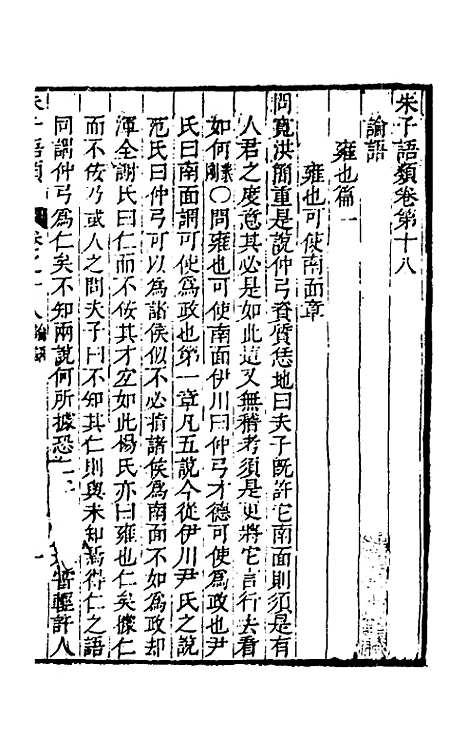 朱子語類卷第十八
論語
雍也篇一
雍也可使南面章
問寬洪簡重是說仲弓資質恁地曰夫子旣許它南面則須是有
人君之度意其必是如此這又無稽考須是更將它言行去看
如何賜〇問雍也可使南面伊川曰仲弓才德可使爲政也尹
氏曰南面謂可使爲政也第一章凡五說今從伊川尹氏之說
范氏曰仲弓可以爲諸侯似不必指諸侯爲南面不如爲政却
渾全謝氏曰仁而不佞其才宜如此楊氏亦曰雍也仁矣據仁
而不佞乃或人之問夫子曰不知其仁則與未知焉得仁之語
同謂仲弓爲仁矣不知兩說何所據恐 嘗輕許人